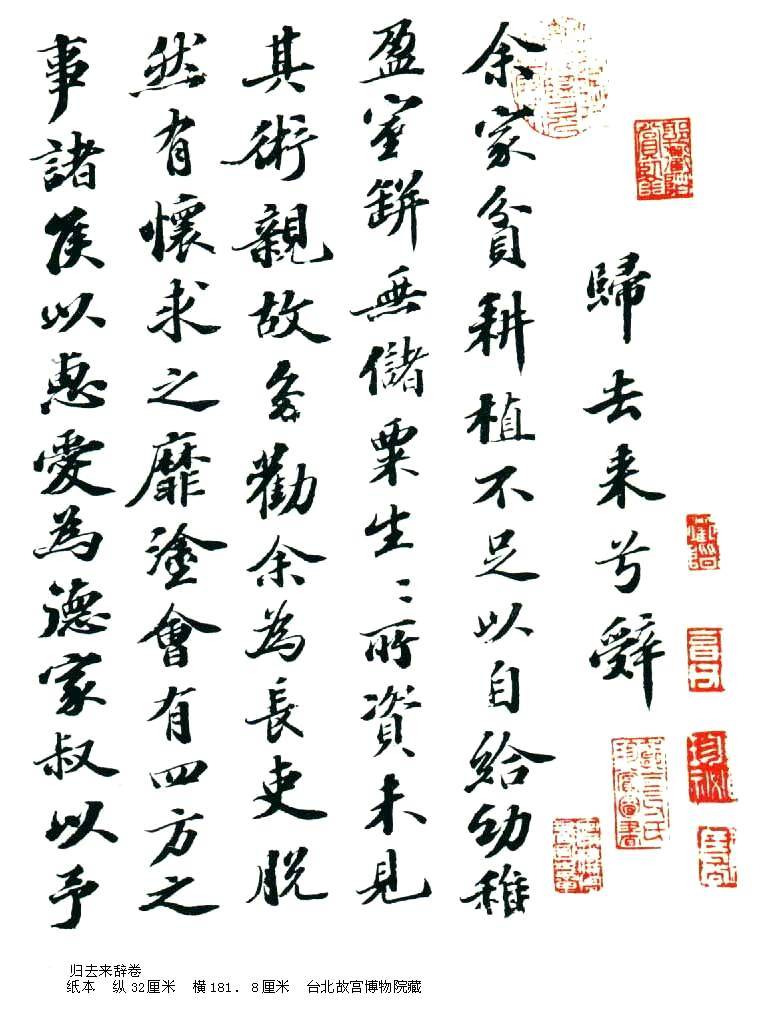 歸去来兮辭
余家貧耕植不足以自給幼稚
盈室缾無儲粟生〻所資未見
其術親故多勸余為長吏脱
然有懷求之靡塗會有四方之
事諸侯以惠愛為德家叔以予
归去来辞卷
纸本 纵32厘米 横181.8厘米 台北故宫博物院藏